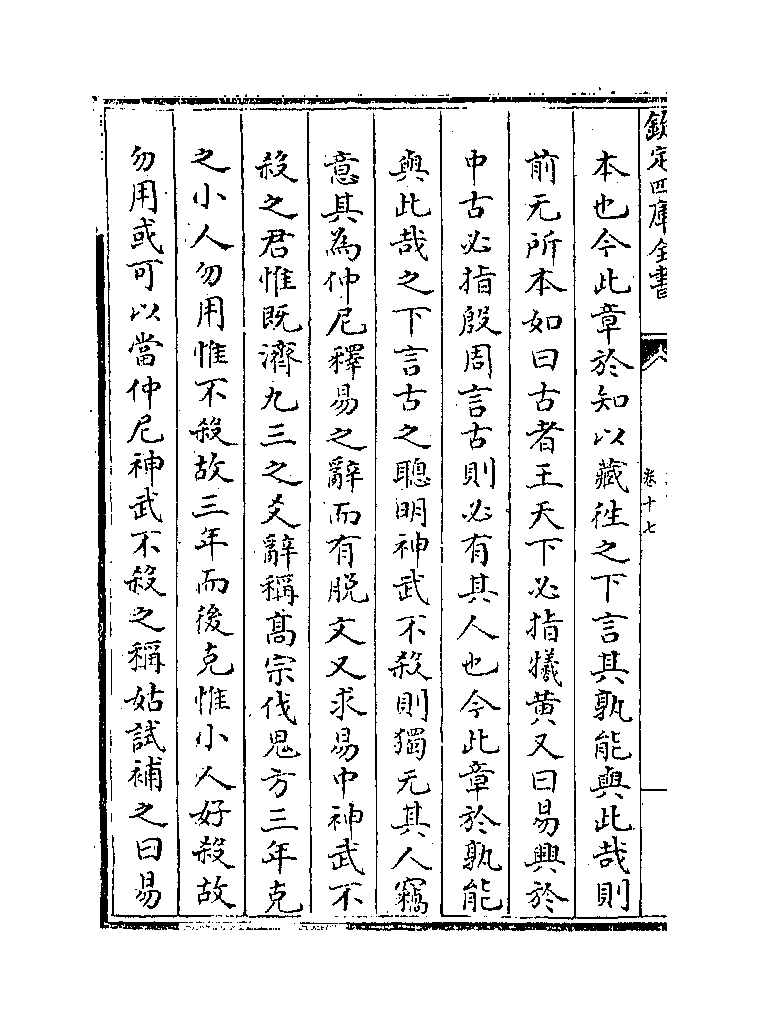 欽定四庫全書
卷十七
本也今此章於知以藏徃之下言其孰能與此哉則
前无所本如曰古者王天下必指犧黄又曰易興於
中古必指殷周言古則必有其人也今此章於孰能
與此哉之下言古之聰明神武不殺則獨无其人竊
意其為仲尼釋易之辭而有脱文又求易中神武不
殺之君惟既濟九三之爻辭稱髙宗伐鬼方三年克
之小人勿用惟不殺故三年而後克惟小人好殺故
勿用或可以當仲尼神武不殺之稱姑試補之曰易